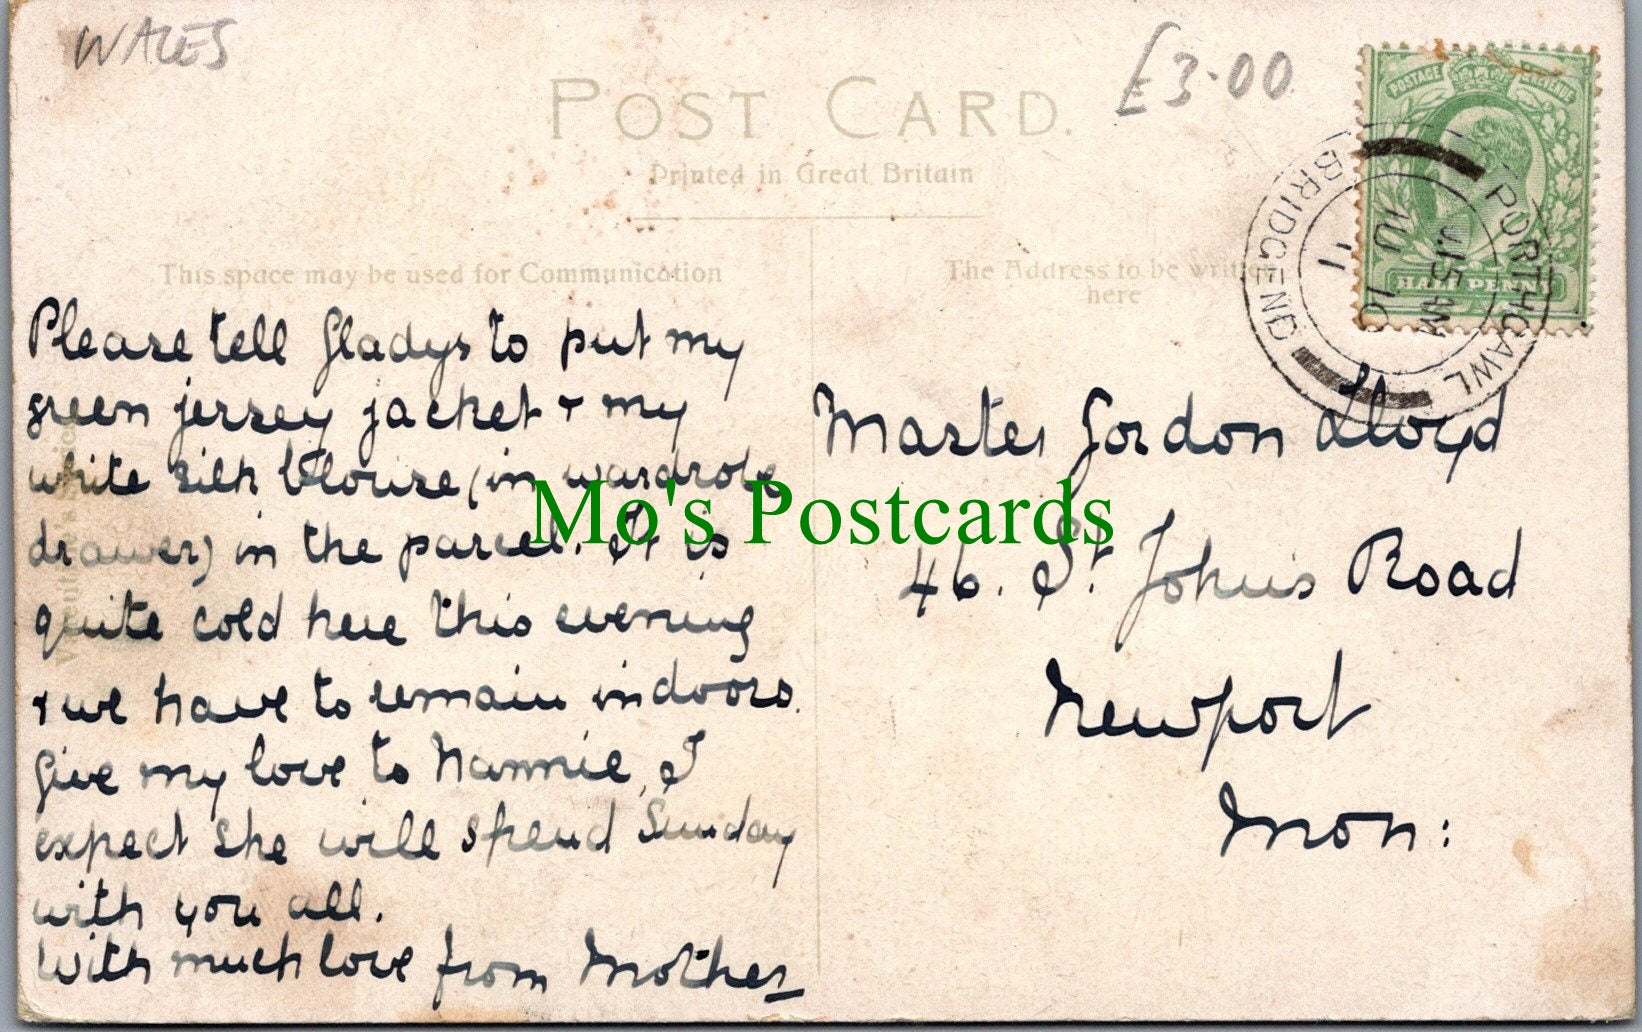 WALES
£3.00
POST CARD.
Printed in Great Britain
POSTAGE REVENUE
HALF PENNY
PORTHCAWL
BRIDGEND
AU 10
11
This space may be used for Communication
The Address to be written
here
Please tell Gladys to put my
green jersey jacket + my
white silk blouse (in wardrobe
drawer) in the parcel. It is
quite cold here this evening
+ we have to remain indoors.
Give my love to Nannie, I
expect she will spend Sunday
with you all.
With much love from Mother
Master Gordon Lloyd
46. St. John's Road
Newport
Mon:
Mo's Postcards